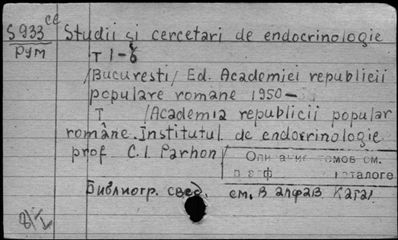 S 933 ce
Рум
Studii și cercetari de endocrinologie
T 1-6
/Bucuresti/ Ed. Academiei republicii
populare romane 1950-
T /Academia republicii popular
române. Institutul de endocrinologie
prof C.I. Parhon/
Описание томов см.
каталоге
Библиогр. свед. см. в алфав катал
8/I